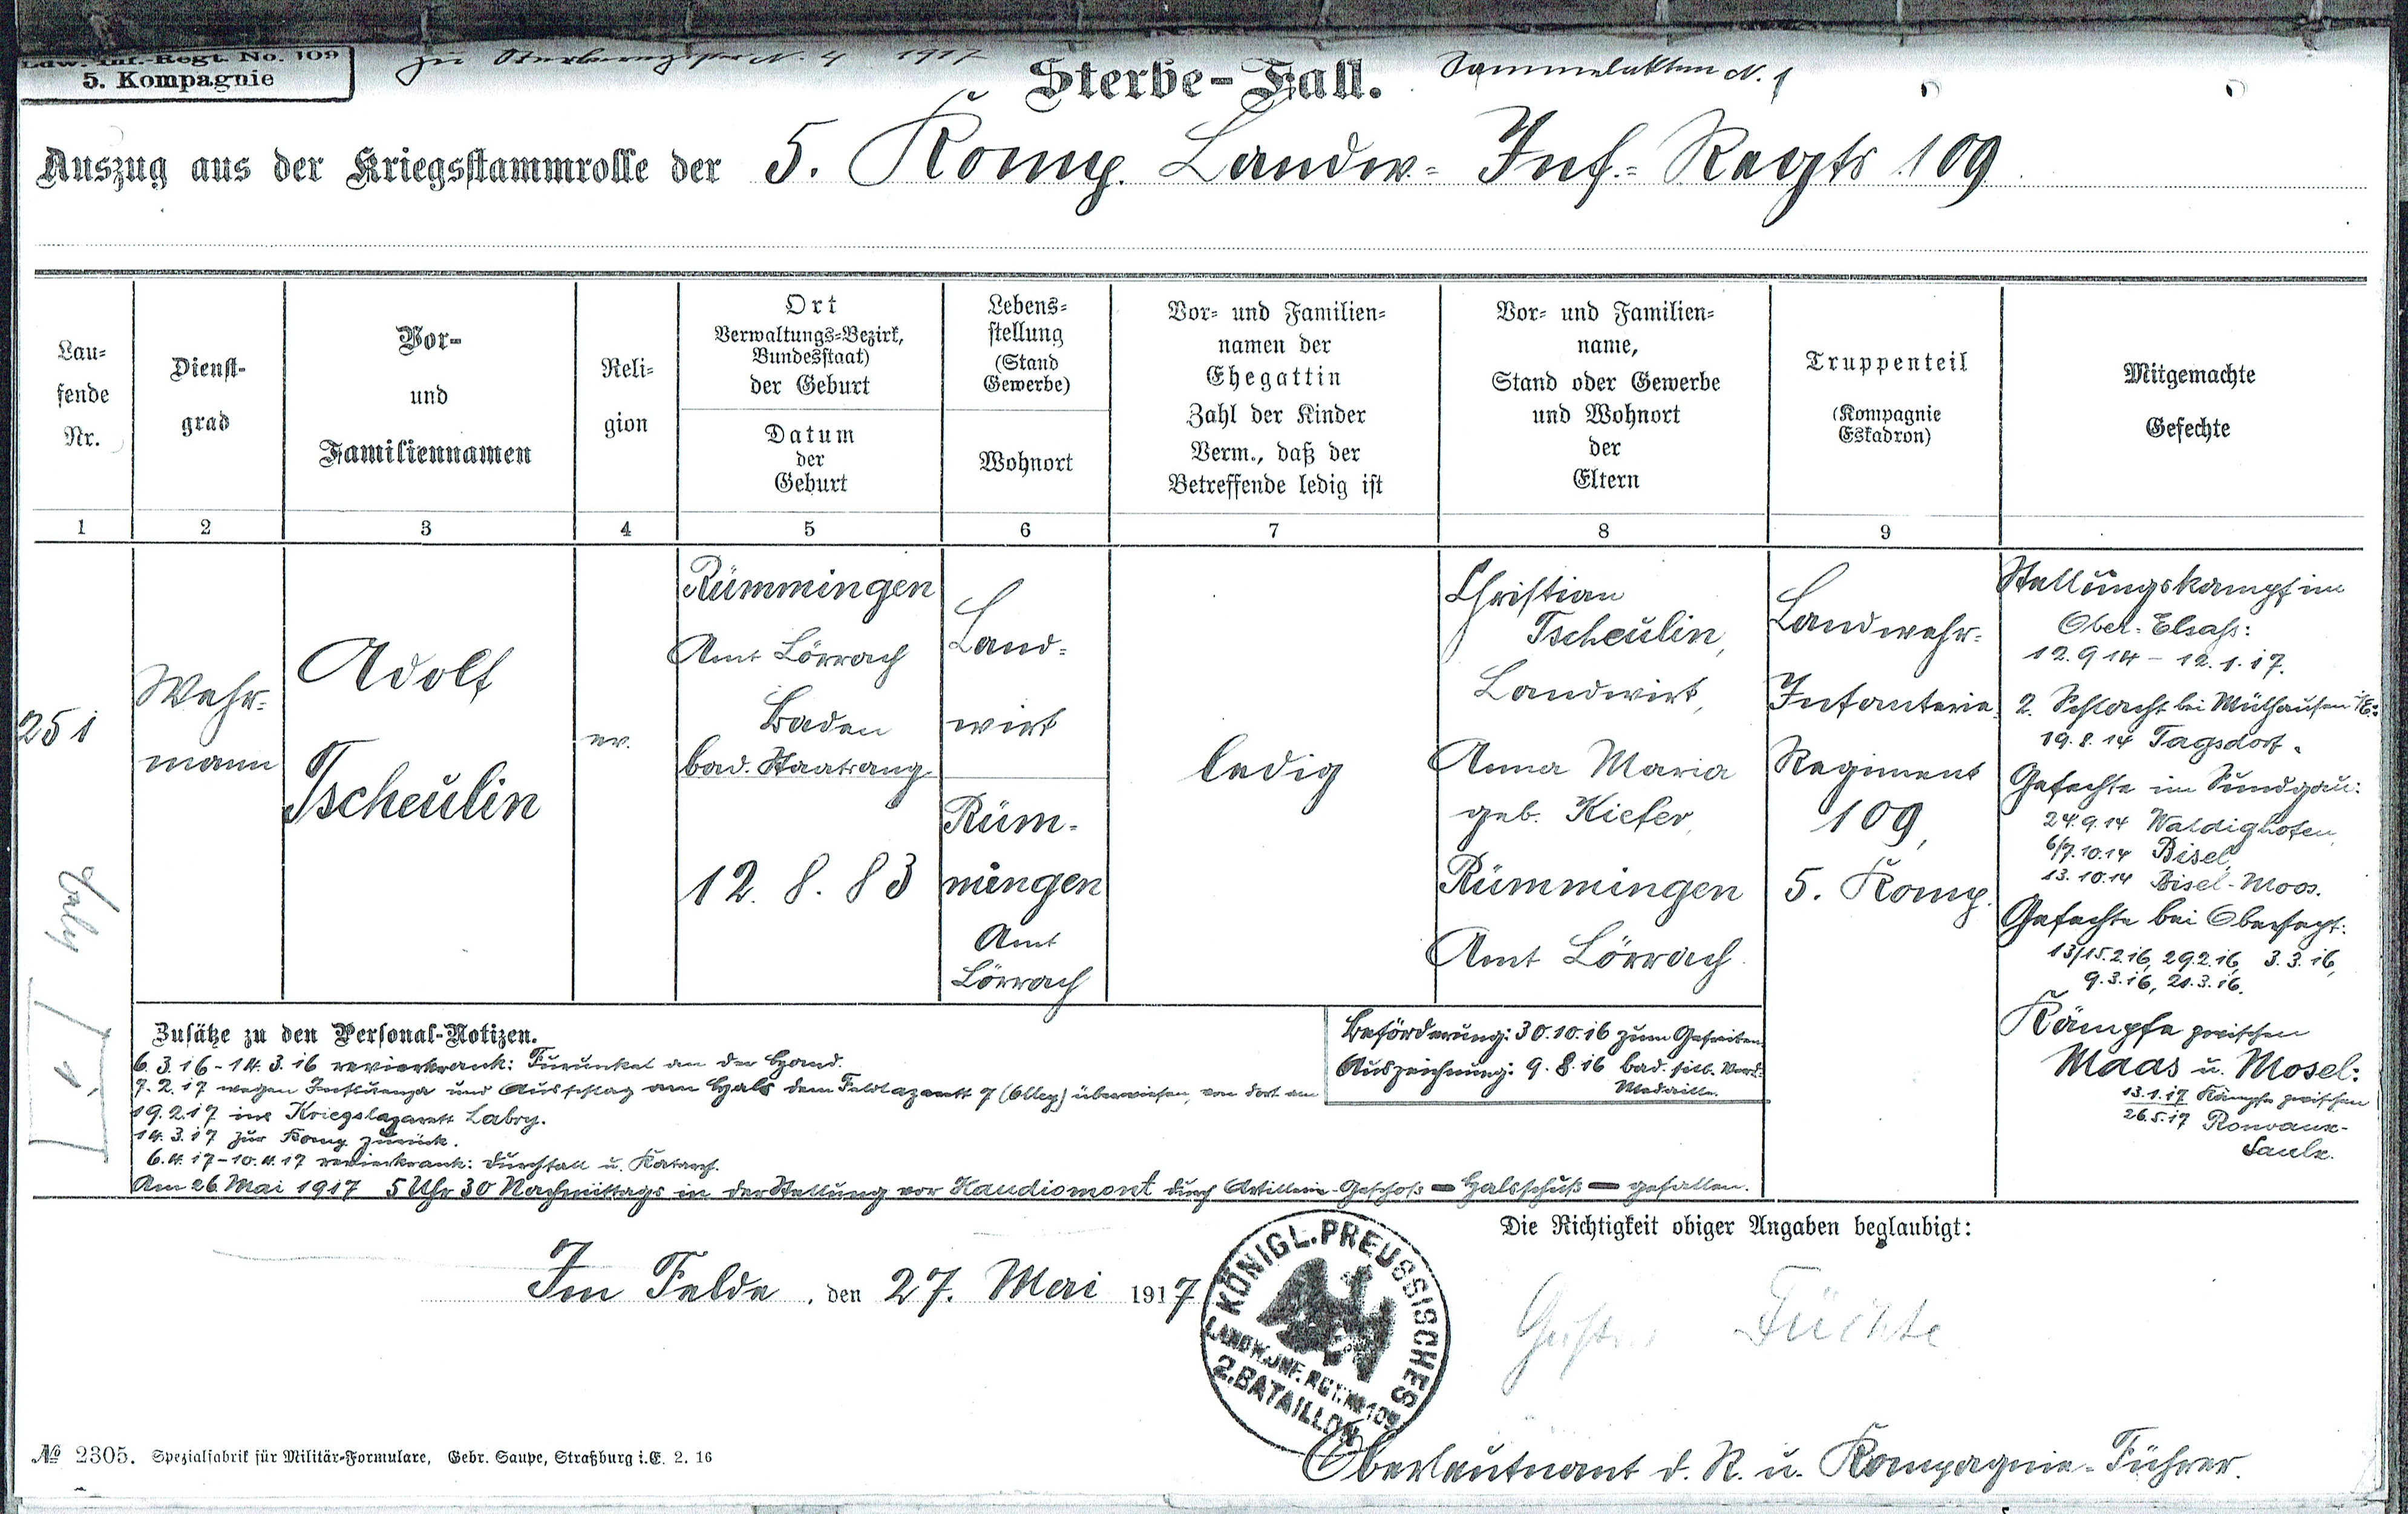 Ldw. Inf.-Regt. No. 109
5. Kompagnie
zu Sterberegister N. 4 1917
Sterbe-Fall.
Sammelakten N. 1
Auszug aus der Kriegsstammrolle der 5. Komp. Landw.- Inf.- Regts 109
Lau-
fende
Nr.
Dienst-
grad
Vor-
und
Familiennamen
Reli-
gion
Ort
Verwaltungs-Bezirk,
Bundesstaat)
der Geburt
Datum
der
Geburt
Lebens-
stellung
(Stand
Gewerbe)
Wohnort
Vor- und Familien-
namen der
Ehegattin
Zahl der Kinder
Verm., daß der
Betreffende ledig ist
Vor- und Familien-
name,
Stand oder Gewerbe
und Wohnort
der
Eltern
Truppenteil
(Kompagnie
Eskadron)
Mitgemachte
Gefechte
1 2 3 4 5 6 7 8 9
251
Wehr-
mann
Adolf
Tscheulin
ev.
Rümmingen
Amt Lörrach
Baden
bad. Staatsang.
12. 8. 83
Land-
wirt
Rüm-
mingen
Amt
Lörrach
ledig
Christian
Tscheulin,
Landwirt,
Anna Maria
geb. Kiefer,
Rümmingen
Amt Lörrach
Landwehr-
Infanterie-
Regiment
109,
5. Komp.
Stellungskampf im
Ober-Elsaß:
12.9 14 - 12.1.17.
2. Schlacht bei Mülhausen i/E.:
19.8.14 Tagsdorf.
Gefechte im Sundgau:
24.9.14 Waldighofen,
6/7.10.14 Bisel,
13.10.14 Bisel-Moos.
Gefechte bei Obersept:
13/15.2.16, 29.2.16, 3.3.16,
9.3.16, 21.3.16.
Kämpfe zwischen
Maas u. Mosel:
13.1.17 Kämpfe zwischen
26.5.17 Ronvaux-
Saulx.
Zusätze zu den Personal-Notizen.
6.3.16 - 14.3.16 revierkrank: Furunkel an der Hand.
7.2.17 wegen Influenza und Ausschlag am Hals dem Feldlazarett 7 (Olley) überwiesen, von dort am
19.2.17 ins Kriegslazarett Labry.
14.3.17 zur Komp. zurück.
6.4.17 - 10.4.17 revierkrank: Durchfall u. Katarrh.
Am 26. Mai 1917 5 Uhr 30 Nachmittags in der Stellung vor Haudiomont durch Artillerie-Geschoß - Halsschuß - gefallen.
Beförderung: 30.10.16 zum Gefreiten
Auszeichnung: 9.8.16 bad. silb. Verd.-
Medaille.
Im Felde, den 27. Mai 1917
KÖNIGL. PREUSSISCHES
LANDW. INF. RGT. No 109
2. BATAILLON
Die Richtigkeit obiger Angaben beglaubigt:
Oberleutnant d. R. u. Kompagnie-Führer.
№ 2305. Spezialfabrik für Militär-Formulare, Gebr. Saupe, Straßburg i.E. 2. 16